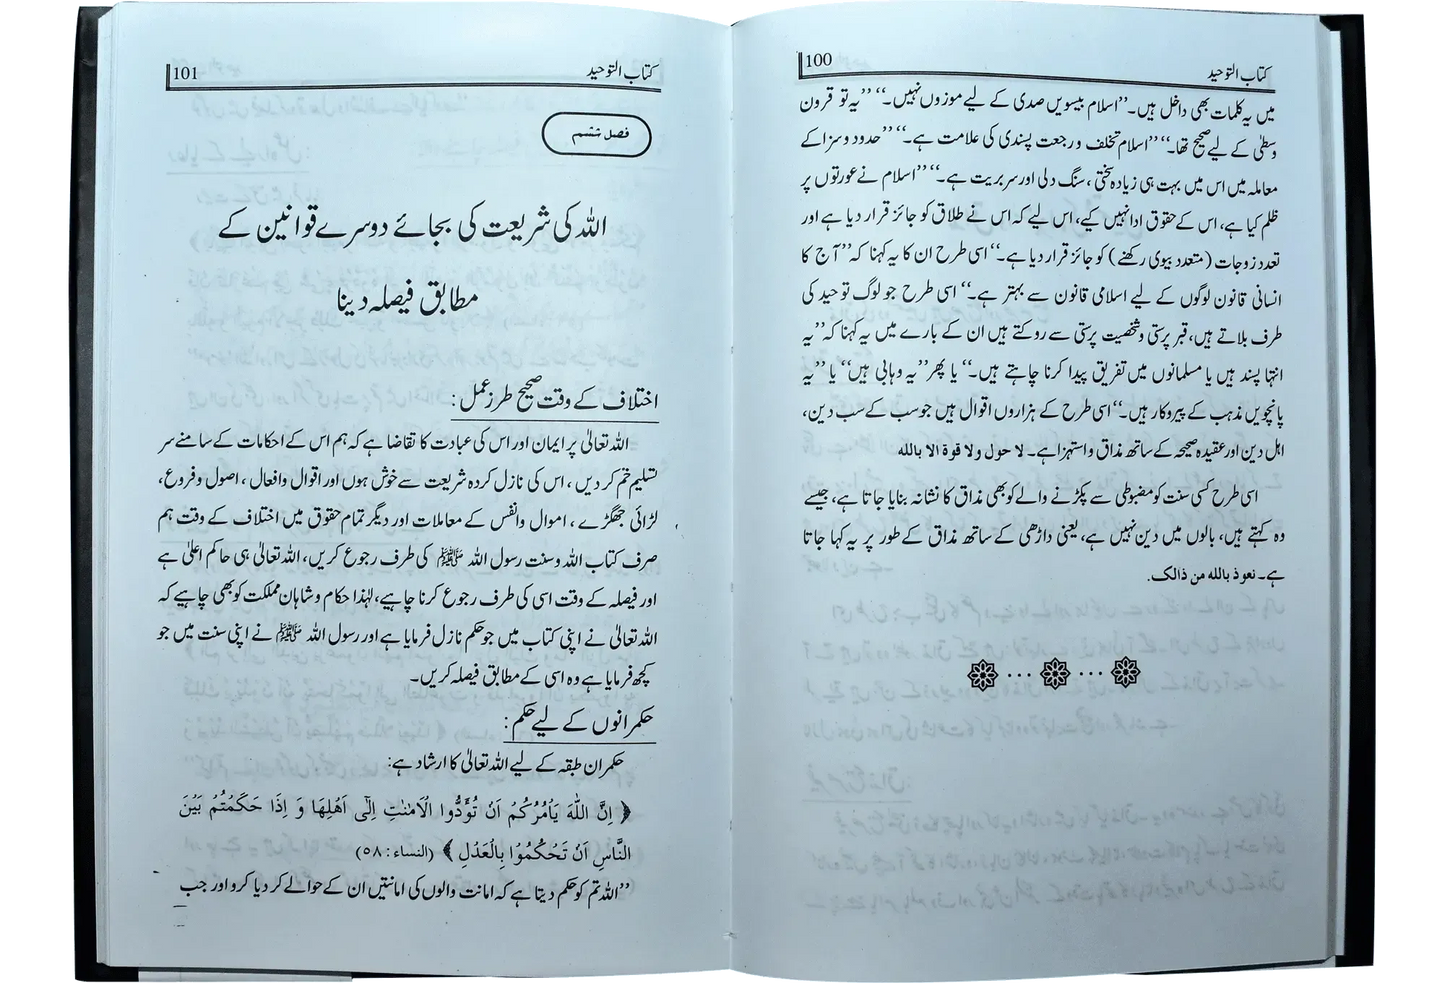 کتاب التوحید 100
میں یہ کلمات بھی داخل ہیں۔ ’’اسلام بیسویں صدی کے لیے موزوں نہیں۔‘‘ ’’یہ تو قرون
وسطیٰ کے لیے صحیح تھا۔‘‘ ’’اسلام تخلف و رجعت پسندی کی علامت ہے۔‘‘ ’’حدود و سزا کے
معاملہ میں اس میں بہت ہی زیادہ سختی، سنگ دلی اور سربریت ہے۔‘‘ ’’اسلام نے عورتوں پر
ظلم کیا ہے، اس کے حقوق ادا نہیں کیے، اس لیے کہ اس نے طلاق کو جائز قرار دیا ہے اور
تعدد زوجات (متعدد بیوی رکھنے) کو جائز قرار دیا ہے۔‘‘ اسی طرح ان کا یہ کہنا کہ ’’آج کا
انسانی قانون لوگوں کے لیے اسلامی قانون سے بہتر ہے۔‘‘ اسی طرح جو لوگ توحید کی
طرف بلاتے ہیں، قبر پرستی و شخصیت پرستی سے روکتے ہیں ان کے بارے میں یہ کہنا کہ ’’یہ
انتہا پسند ہیں یا مسلمانوں میں تفریق پیدا کرنا چاہتے ہیں۔‘‘ یا پھر ’’یہ وہابی ہیں‘‘ یا ’’یہ
پانچویں مذہب کے پیروکار ہیں۔‘‘ اسی طرح کے ہزاروں اقوال ہیں جو سب کے سب دین،
اہل دین اور عقیدہ صحیحہ کے ساتھ مذاق و استہزا ہے۔ لا حول ولا قوة الا بالله
اسی طرح کسی سنت کو مضبوطی سے پکڑنے والے کو بھی مذاق کا نشانہ بنایا جاتا ہے، جیسے
وہ کہتے ہیں، بالوں میں دین نہیں ہے، یعنی داڑھی کے ساتھ مذاق کے طور پر یہ کہا جاتا
ہے۔ نعوذ بالله من ذالك.
کتاب التوحید 101
فصل ششم
اللہ کی شریعت کی بجائے دوسرے قوانین کے
مطابق فیصلہ دینا
اختلاف کے وقت صحیح طرز عمل:
اللہ تعالیٰ پر ایمان اور اس کی عبادت کا تقاضا ہے کہ ہم اس کے احکامات کے سامنے سر
تسلیم خم کر دیں، اس کی نازل کردہ شریعت سے خوش ہوں اور اقوال و افعال، اصول و فروع،
لڑائی جھگڑے، اموال و انفس کے معاملات اور دیگر تمام حقوق میں اختلاف کے وقت ہم
صرف کتاب اللہ و سنت رسول اللہ ﷺ کی طرف رجوع کریں، اللہ تعالیٰ ہی حاکم اعلیٰ ہے
اور فیصلہ کے وقت اسی کی طرف رجوع کرنا چاہیے، لہٰذا حکام و شاہان مملکت کو بھی چاہیے کہ
اللہ تعالیٰ نے اپنی کتاب میں جو حکم نازل فرمایا ہے اور رسول اللہ ﷺ نے اپنی سنت میں جو
کچھ فرمایا ہے وہ اسی کے مطابق فیصلہ کریں۔
حکمرانوں کے لیے حکم:
حکمران طبقہ کے لیے اللہ تعالیٰ کا ارشاد ہے:
﴿ اِنَّ اللّٰهَ يَاْمُرُكُمْ اَنْ تُؤَدُّوا الْاَمٰنٰتِ اِلٰٓى اَهْلِهَا وَ اِذَا حَكَمْتُمْ بَيْنَ
النَّاسِ اَنْ تَحْكُمُوْا بِالْعَدْلِ ﴾ (النساء: ٥٨)
’’اللہ تم کو حکم دیتا ہے کہ امانت والوں کی امانتیں ان کے حوالے کر دیا کرو اور جب